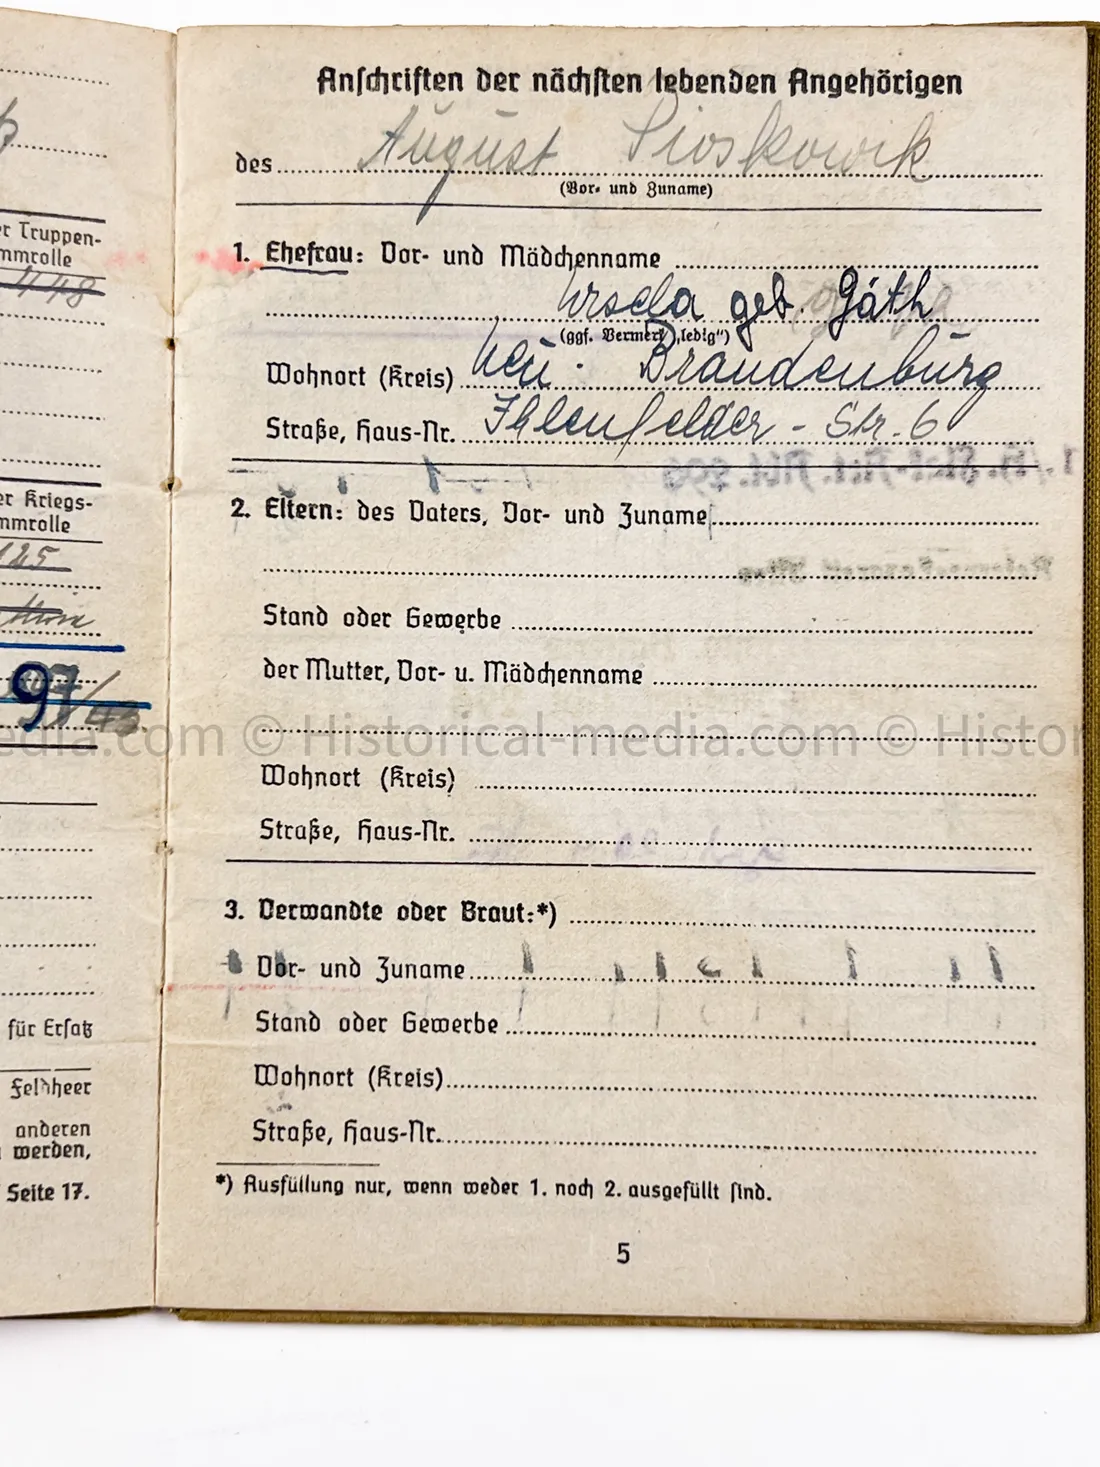 er Truppen-
mmrolle
448
er Kriegs-
mmrolle
125
97
für Ersatz
Feldheer
anderen
werden,
Seite 17.
Anschriften der nächsten lebenden Angehörigen
des August Pioskowik
(Vor- und Zuname)
1. Ehefrau: Vor- und Mädchenname
Ursela geb. Gäth
(ggf. Vermerk „ledig“)
Wohnort (Kreis) Neu-Brandenburg
Straße, Haus-Nr. Ihlenfelder-Str. 6
2. Eltern: des Vaters, Vor- und Zuname
Stand oder Gewerbe
der Mutter, Vor- u. Mädchenname
© Historical-media.com ©
Wohnort (Kreis)
Straße, Haus-Nr.
3. Verwandte oder Braut:*)
Vor- und Zuname
Stand oder Gewerbe
Wohnort (Kreis)
Straße, Haus-Nr.
*) Ausfüllung nur, wenn weder 1. noch 2. ausgefüllt sind.
5